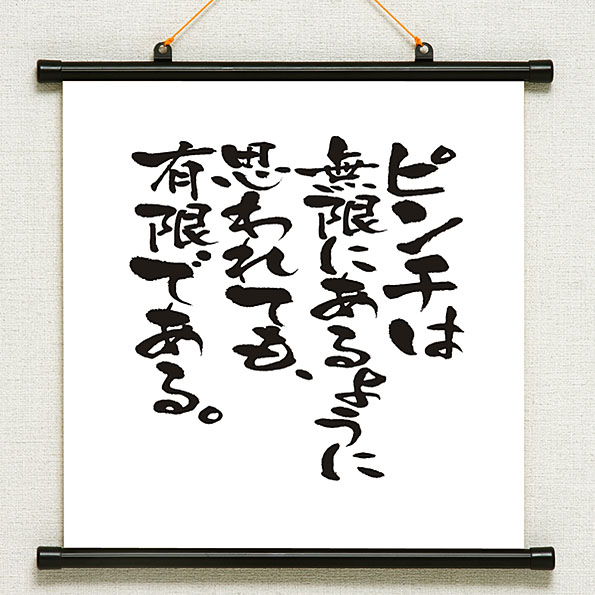 ピンチは
無限にあるように
思われても、
有限である。